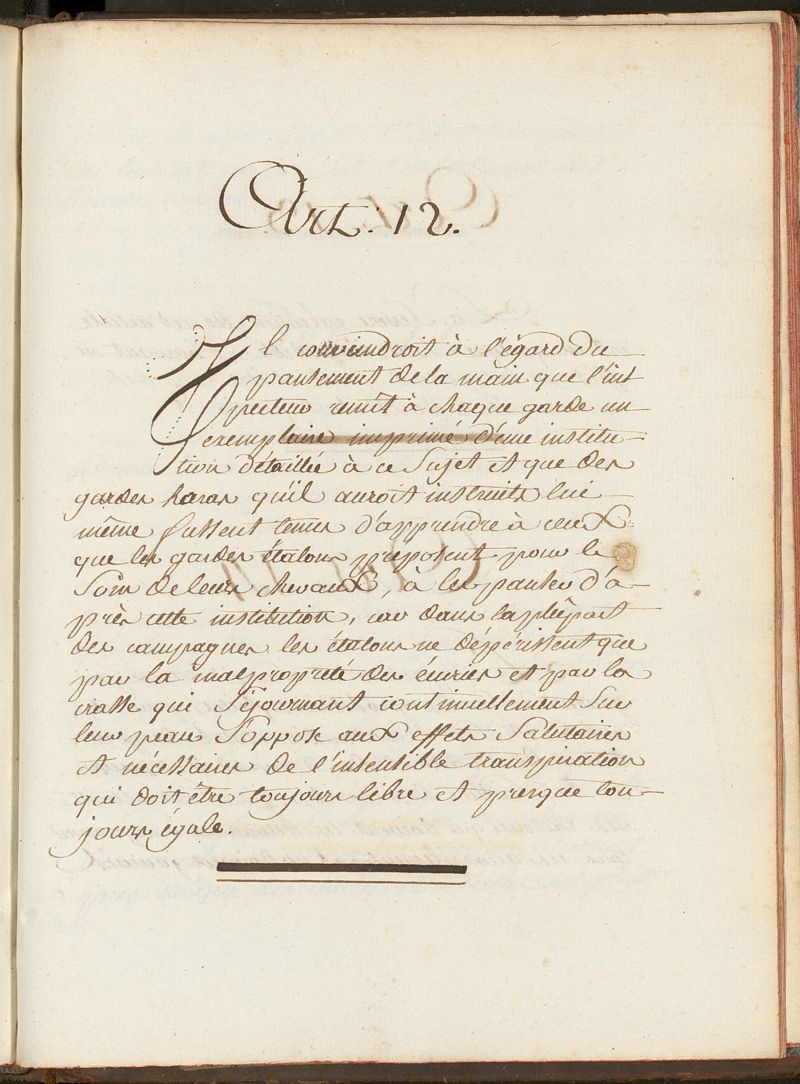 Art: 12.
Il conviendroit à l'égard du
pansement de la main que l'ins
pecteur remît à chaque garde un
exemplaire imprimé d'une institu-
tion détaillée à ce Sujet et que des
gardes haras qu'il auroit instruits lui
même fussent tenus d'apprendre à ceux
que les gardes étalons preposent pour le
Soin de leurs chevaux, à les panser d'a-
près cette institution, car dans la plûpart
des campagnes les étalons ne dépérissent que
par la malpropreté des écuries et par la
crasse qui Séjournant continuellement Sur
leur peau S'oppose aux effets Salutaires
et nécessaires de l'insensible transpiration
qui doit être toujours libre et presque tou-
jours égale.